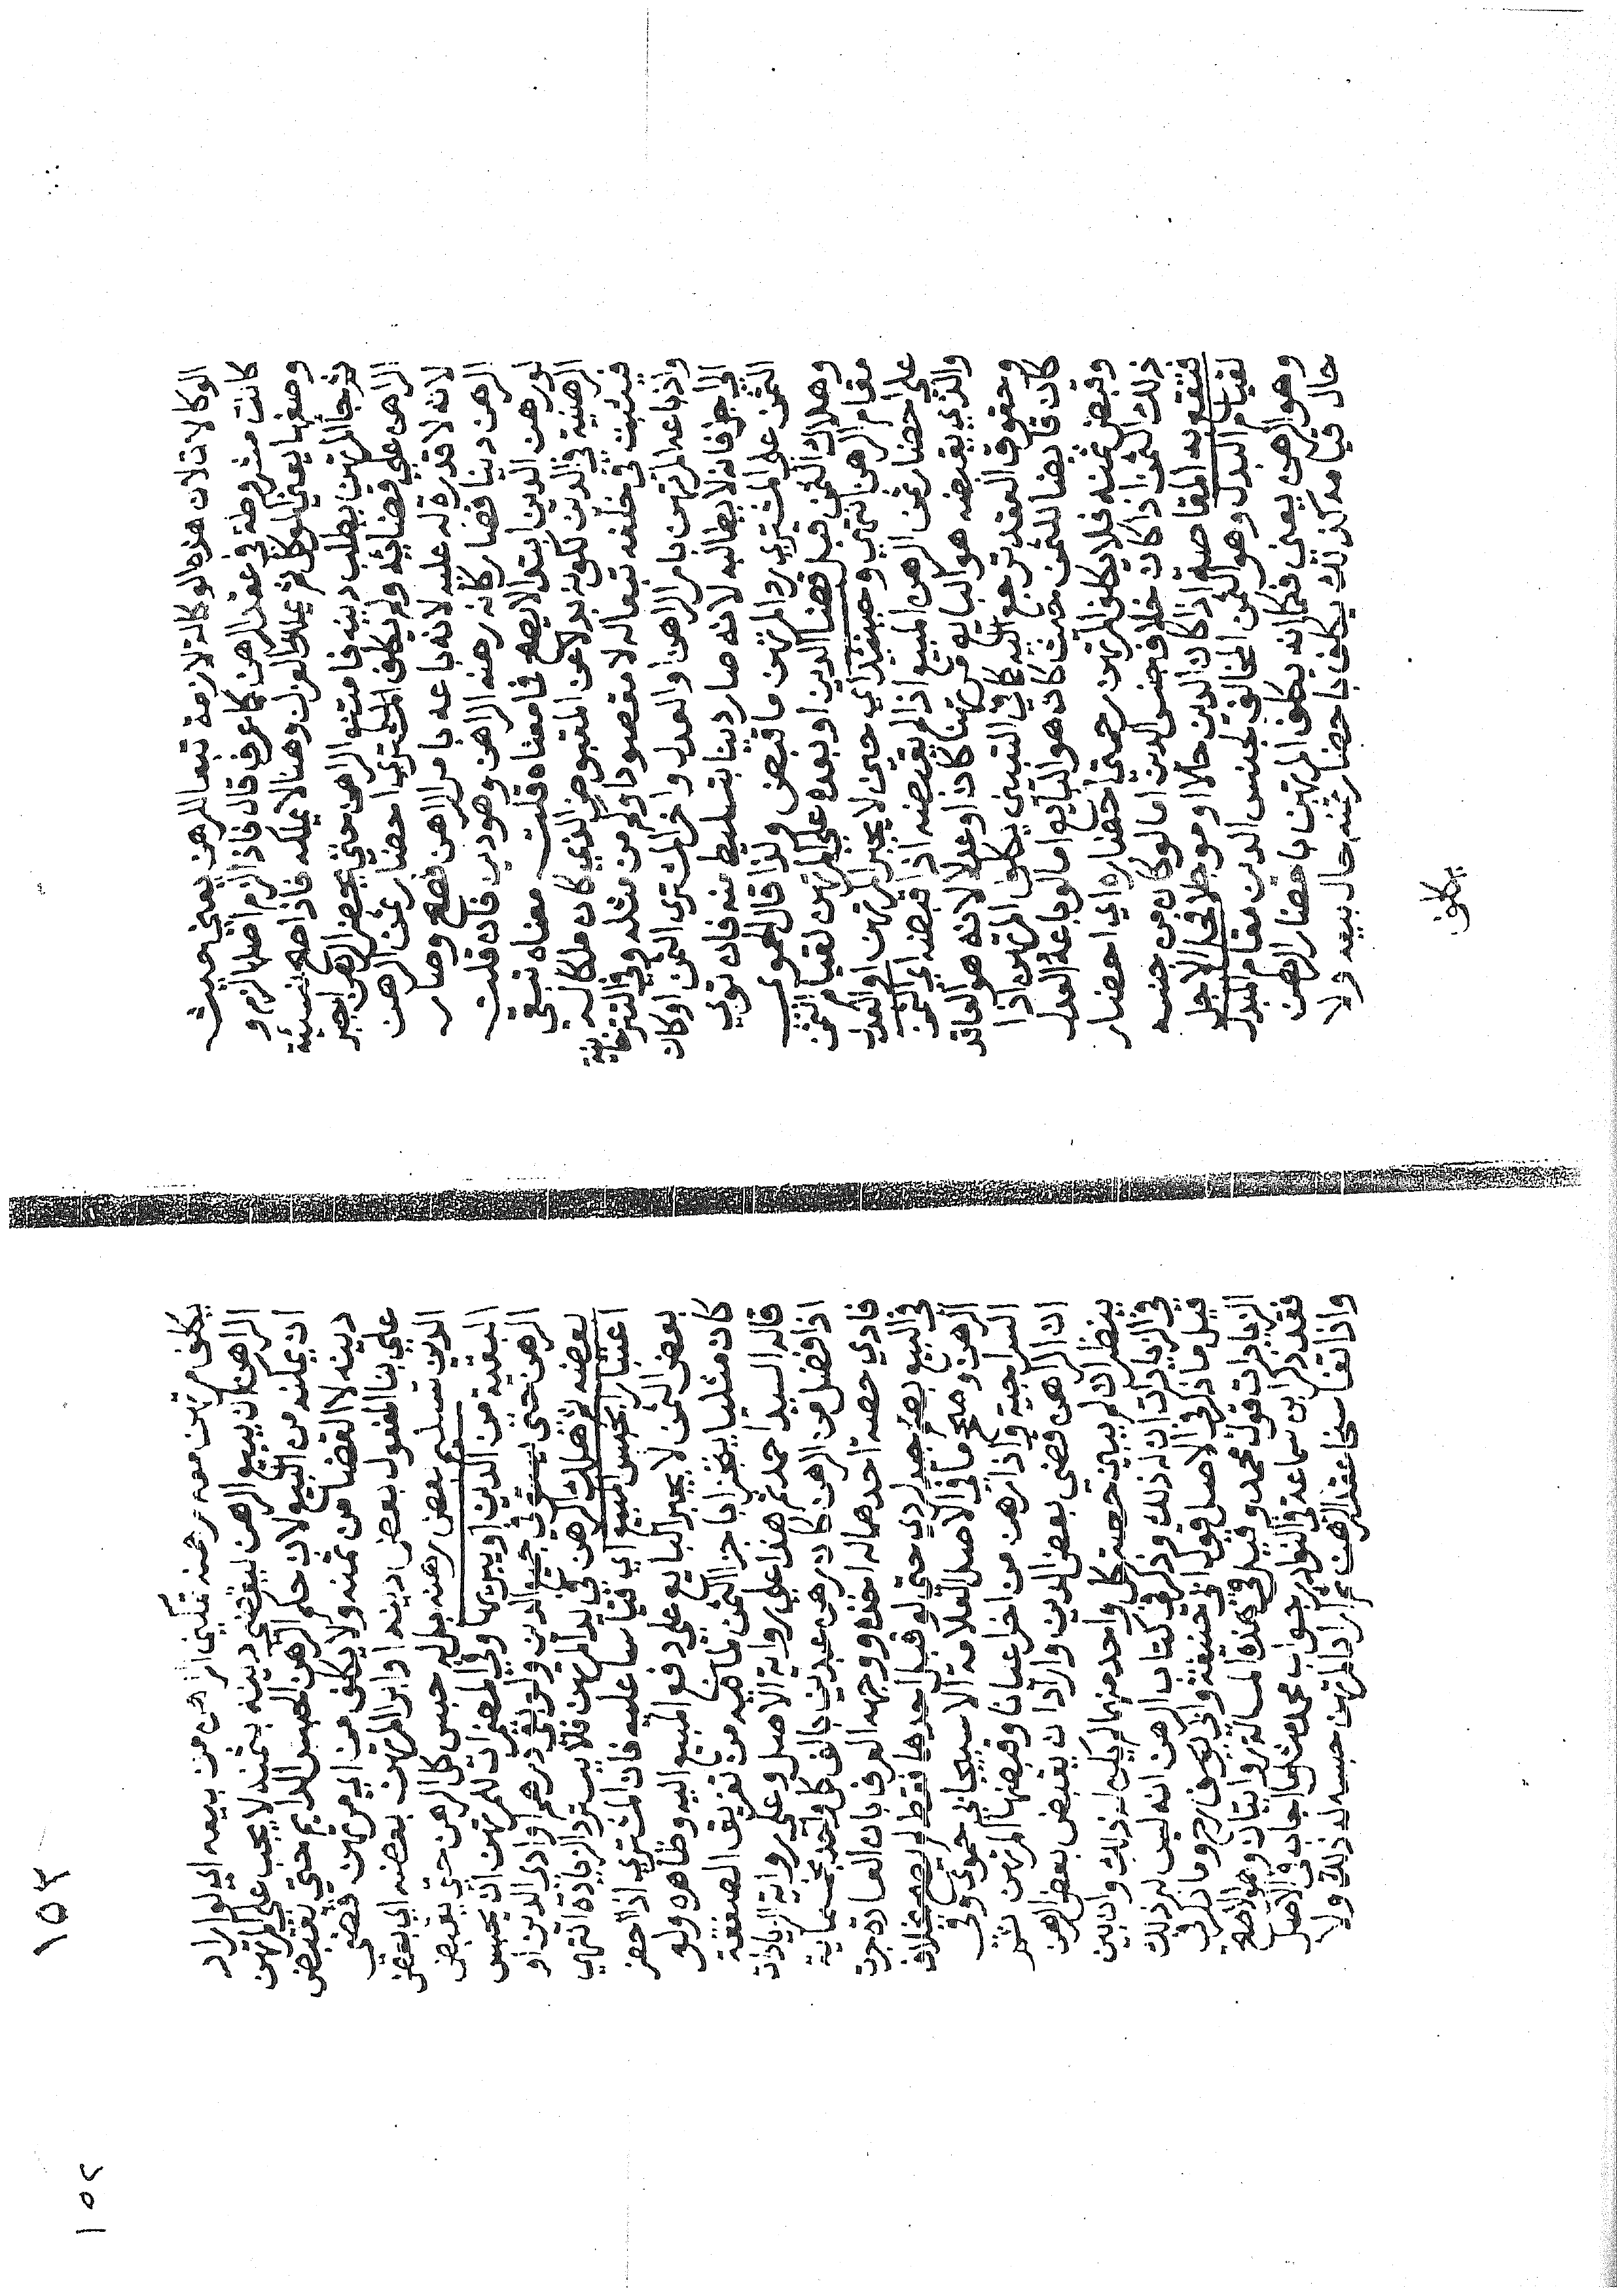 الوكالات لان هذه الوكالة لازمة تبعا للرهن يعني حيث
كانت مشروطة في عقد الرهن كما عرف قال فاذا لزم اصلها لزم و
وصفها يعني الموكل ثم يملك العزل وهنا لا يملكه فاذا صح نسيئة
ثم جا المرتهن يطلب دينه فامتنع الراهن حتي يحضر الرهن اجبر
الراهن علي قضائه ولم يكلف المشتري احضار ثمن الرهن
لانه لا قدرة له عليه لانه باعه بامر الراهن فصح وصار
الرهن دينا فصار كانه رهنه الراهن وهو دين فان قلت
لو رهن الدين ابتدا لا يصح فما معناه قلت معناه تبقي
الرهنية في الدين لكونه بدلا عن المقبوض الذي كان ملكا له
فيثبت في خلفه تبعا له لا مقصودا وكم من مثله وفي التترخانية
واذا باعه المرتهن بامر الراهن او العدل واخر المشتري الثمن او كان
الي اجل فانه لا يطالبه لانه صار دينا بتسليط منه فان توي
الثمن علي المشتري رد المرتهن ما قبض ولذا قال الحموي
وهلاك الثمن قبل قضا الدين او بعده علي المرتهن لقيام الثمن
مقام الرهن انتهي وحينئذ اي حين لا يجبر المرتهن او العدل
علي احضار ثمن الرهن المبيع اذا لم يقبضه اذا قبضه اي الثمن
والذي يقبضه هو البايع مرتهنا كان او عدلا لانه هو العاقد
وحقوق العقد ترجع اليه كما في التبيين يكلف المرتهن اذا
كان قابضا للثمن حيث كان هو البايع اما لو باعه العدل
وقبض ثمنه فلا يكلف المرتهن رحمتي احضاره اي احضار
ذلك الثمن اذا كان خلاف جنس الدين اما لو كان من جنسه
فتقع به المقاصة اذا كان الدين حالا او موجلا وحل الاجل
لقيام البدل وهو الثمن المخالف لجنس الدين مقام المبدل
وهو الرهن يعني فكما انه يكلف المرتهن باحضار الرهن
حال قيامه كذلك يكلف باحضار ثمنه حال بيعه ولا
يكلف
١٥٣
يكلف مرتهن معه رهنه تمكين الراهن من بيعه اي لو اراد
الراهن ان يبيع الرهن ليقضي دينه بثمنه لا يجب علي المرتهن
ان يمكنه من البيع لان حكم الرهن الحبس الدايم حتي يقبض
دينه لا القضا من ثمنه ولا يكلف من اي مرتهن قضي
علي بنا المفعول بعض دينه او ابرا المرتهن بعضه اي بعض
الدين تسليم بعض رهنه بل له حبس كل الرهن حتي يقبض
البقية من الدين او يبريها وفي المضمرات للمرتهن ان يحبس
الرهن حتي يستوفي جميع الدين ولو بقي درهم ولو ادي الدين او
بعضه ثم هلك الرهن في يد المرتهن فلا يسترد الزيادة انتهي
اعتبارا بحبس المبيع اي قياسا عليه فان المشتري اذا احضر
بعض الثمن لا يجبر البايع علي دفع المبيع اليه وظاهره ولو
كان مثليا يتجزا باجزا الثمن لما فيه من تفريق الصفقة
قاله السيد احمد ثم هذا علي رواية الاصل وعلي رواية الزيادات
اذا فضل من الرهن كان رهن عبدين بالف كل واحد بخمسماية
فادي حصة احدهما له اخذه ووجهه العرف بان العادة جرت
في البيع بضم جيد لردي حتي لو قبل احدهما فقط لم يصح بخلاف
الرهن وصحح ما في الاصل العلامة الاسبيجابي حموي وفي
السراجية واذا رهن من اخر اعيانا وقبضها المرتهن ثم
ان الراهن قضي بعض الدين واراد ان يقبض بعض الرهن
ينظر ان لم يبين حصة كل واحد منهما لم يكن له ذلك وان بين
في الزيادات ان له ذلك وذكر في كتاب الرهن انه ليس له ذلك
قيل ما ذكر في الاصل قول ابي حنيفة وابي يوسف رح وما ذكر في
الزيادات قول محمد وقيل في هذه المسالة روايتان وهو الاصح
فقد ذكر ابن سماعة في النوادر جواب محمد مثل ما اجاب في الاصل
واذا تفاسخا عقد الرهن ثم اراد المرتهن حبسه له ذلك ولا
١٥٢